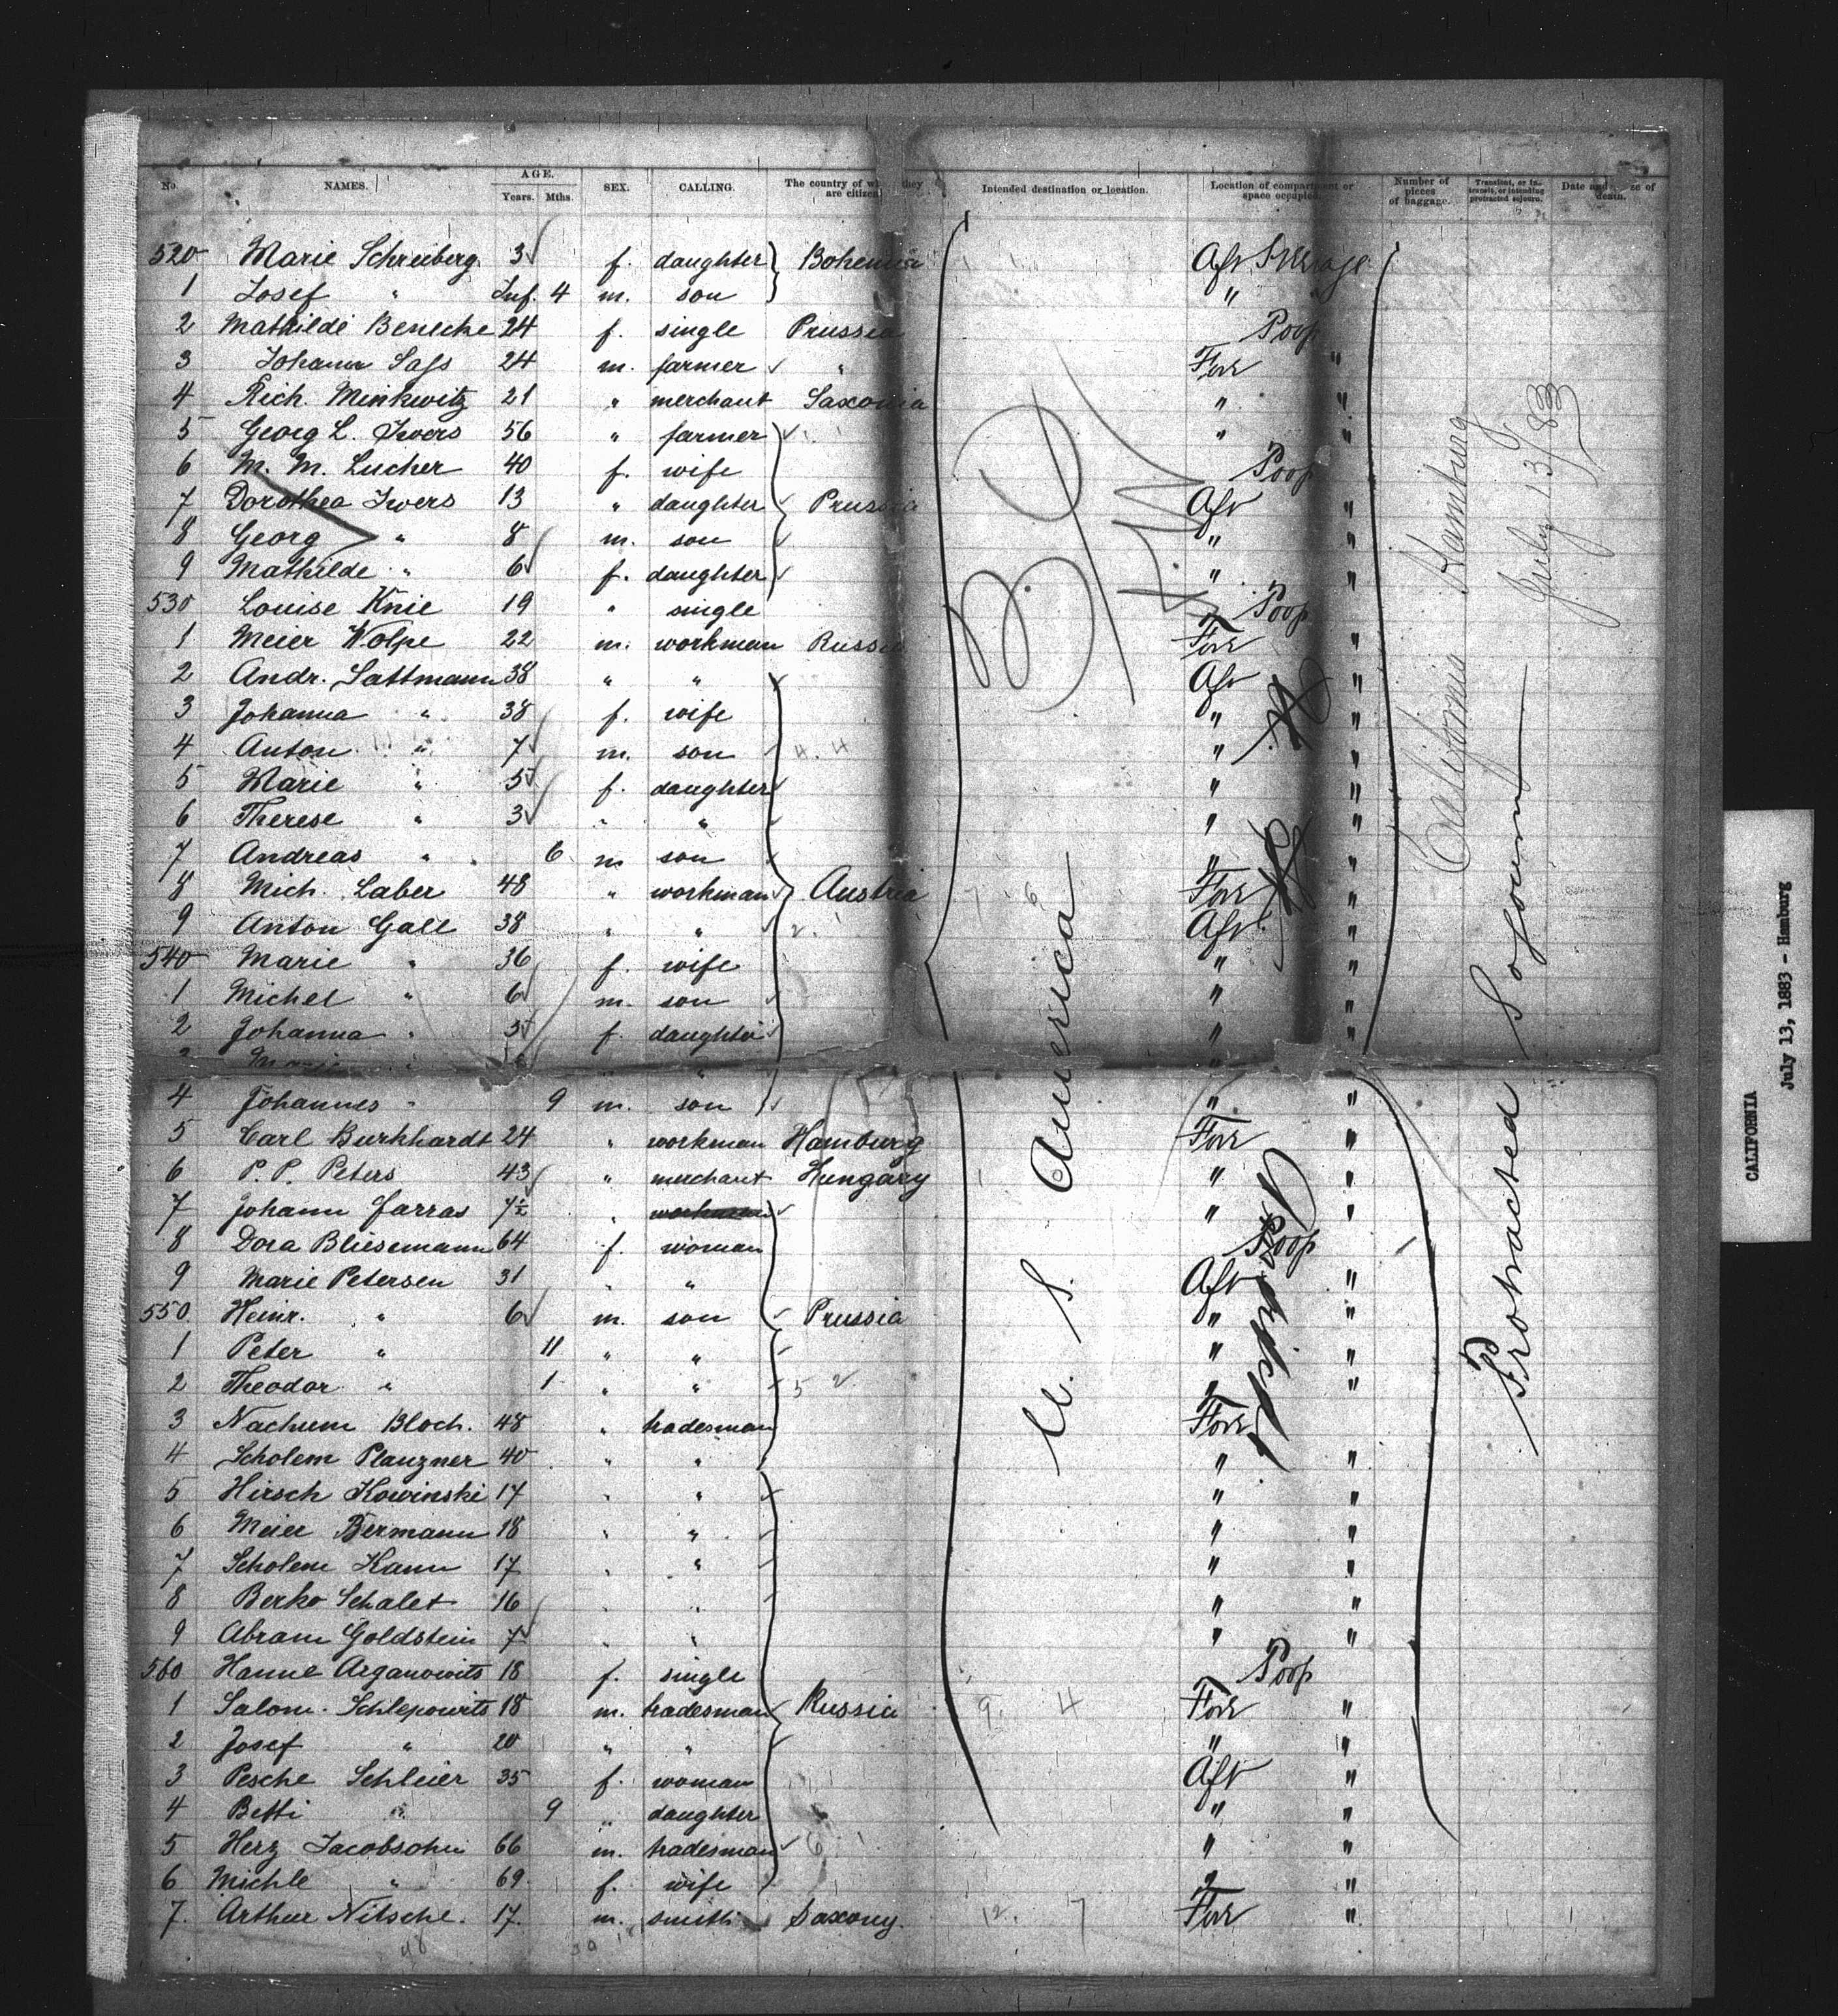 No. NAMES. AGE. Years. Mths. SEX. CALLING. The country of wh they are citizen Intended destination or location. Location of compartment or space occupied. Number of pieces of baggage. Transient, or in-transit, or intending protracted sojourn. Date and of death.
520 Marie Schreiberg 3 f. daughter Bohemia Aft Steerage
1 Josef " Inf. 4 m. son "
2 Mathilde Benecke 24 f. single Prussia Poop
3 Johann Sass 24 m. farmer " Forr "
4 Rich. Minkwitz 21 " merchant Saxonia " "
5 Georg L. Iwers 56 " farmer " "
6 M. M. Lucher 40 f. wife Poop
7 Dorothea Iwers 13 " daughter Prussia Aft "
8 Georg " 8 m. son " "
9 Mathilde " 6 f. daughter " "
530 Louise Knie 19 " single Poop
1 Meier Wolpe 22 m. workman Russia Forr "
2 Andr. Sattmann 38 " " Aft "
3 Johanna " 38 f. wife " "
4 Anton " 7 m. son " "
5 Marie " 5 f. daughter " "
6 Therese " 3 " " " "
7 Andreas " 6 m son " "
8 Mich. Laber 48 " workman Austria Forr "
9 Anton Gall 38 " " Aft "
540 Marie " 36 f. wife " "
1 Michel " 6 m. son " "
2 Johanna " 3 f. daughter " "
4 Johannes " 9 m. son " "
5 Carl Burkhardt 24 " workman Hamburg Forr "
6 P. P. Peters 43 " merchant Hungary " "
7 Johann Jarras 7½ " workman " "
8 Dora Bliesemann 64 f. woman Poop
9 Marie Petersen 31 " " Aft "
550 Heinr. " 6 m. son Prussia " "
1 Peter " 11 " " " "
2 Theodor " 1 " " " "
3 Nachum Bloch. 48 " tradesman Forr
4 Scholem Planzner 40 " " " "
5 Hirsch Kowinski 17 " " " "
6 Meier Bermann 18 " " " "
7 Scholem Kann 17 " " " "
8 Berko Schalet 16 " " " "
9 Abram Goldstein 7 " " " "
560 Hanne Arganowits 18 f. single Poop
1 Salom. Schlepowits 18 m. tradesman Russia Forr "
2 Josef " 20 " " " "
3 Pesche Schleier 35 f. woman Aft "
4 Betti " 9 " daughter " "
5 Herz Jacobsohn 66 m. tradesman " "
6 Michle " 69 f. wife " "
7. Arthur Nitsche. 17. m. smith Saxony. Forr "
U. S. America
California Hamburg
July 13/83
Protracted Sojourn
CALIFORNIA
July 13, 1883 - Hamburg